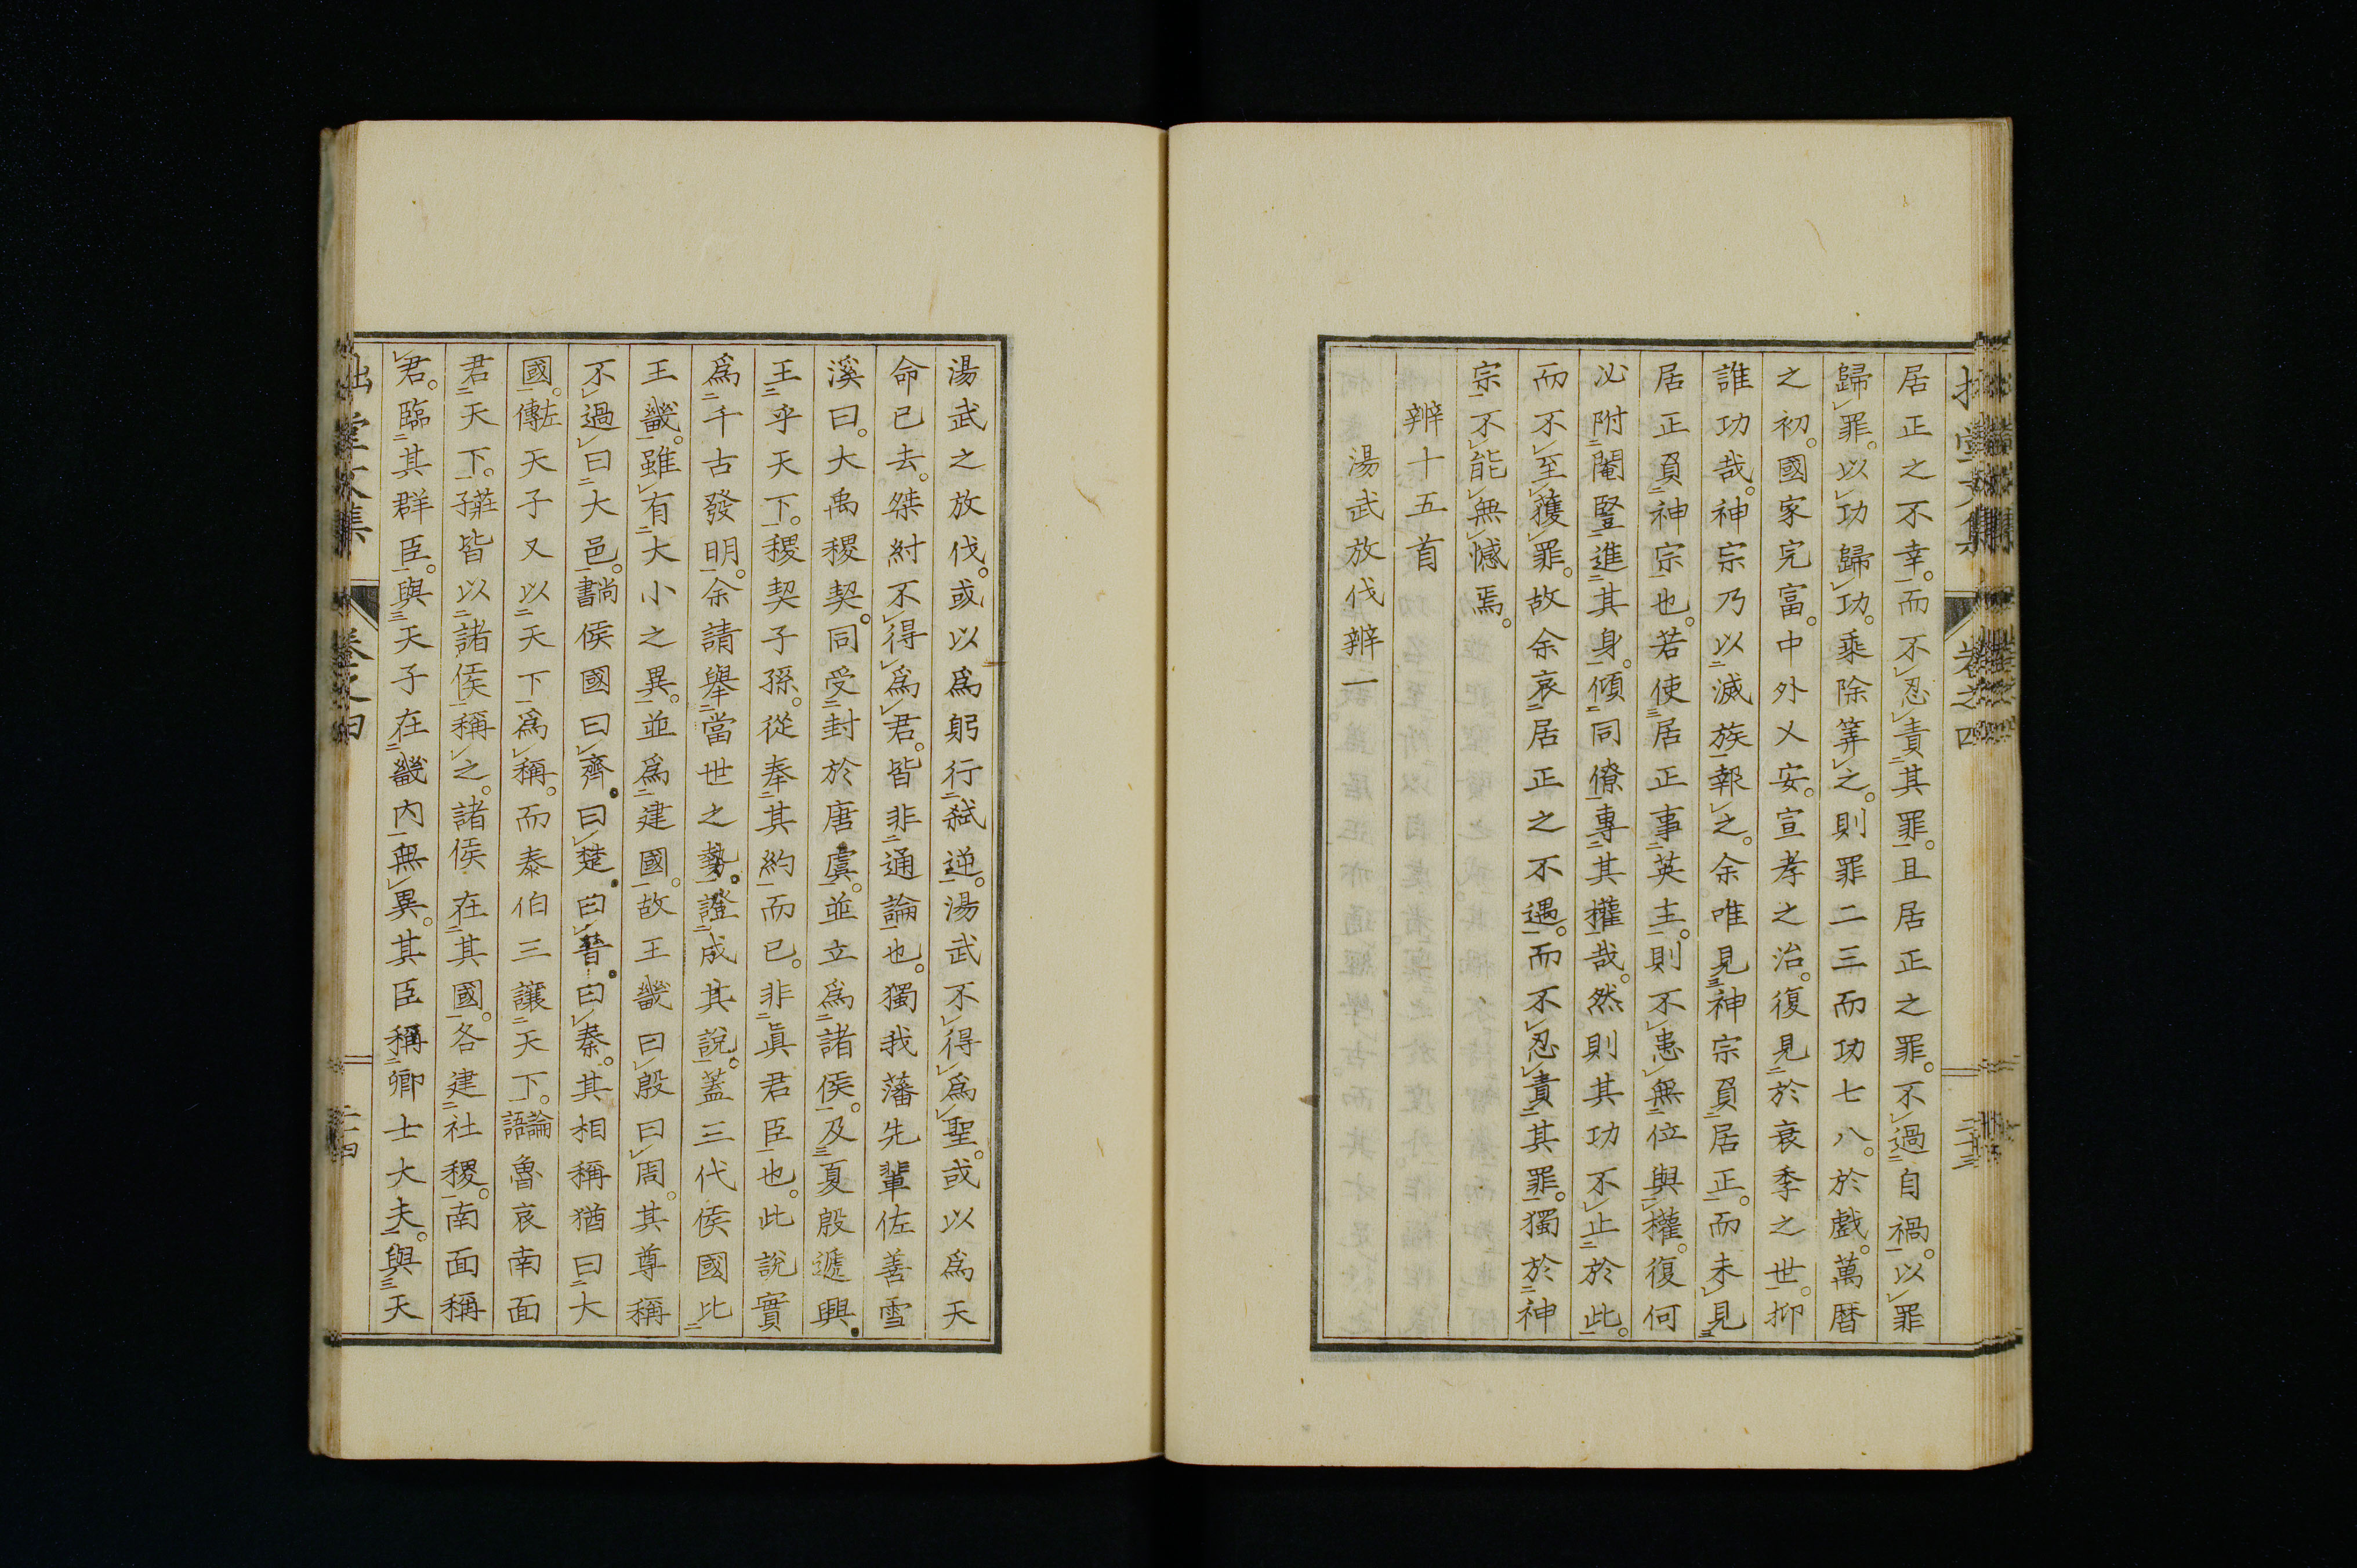 居正之不幸。而不忍責其罪。且居正之罪。不過自禍。以罪
歸罪。以功歸功。乘除筭之。則罪二三而功七八。於戲。萬曆
之初。國家完富。中外乂安。宣孝之治。復見於衰季之世。抑
誰功哉。神宗乃以滅族報之。余唯見神宗負居正。而未見
居正負神宗也。若使居正事英主。則不患無位與權。復何
必附閹豎進其身。傾同僚專其權哉。然則其功不止於此。
而不至獲罪。故余哀居正之不遇。而不忍責其罪。獨於神
宗不能無憾焉。
辨十五首
湯武放伐辨一
湯武之放伐。或以爲躬行弑逆。湯武不得爲聖。或以爲天
命已去。桀紂不得爲君。皆非通論也。獨我藩先輩佐善雪
溪曰。大禹稷契。同受封於唐虞。並立爲諸侯。及夏殷遞興。
王乎天下。稷契子孫。從奉其約而已。非眞君臣也。此說實
爲千古發明。余請舉當世之勢。證成其說。蓋三代侯國比
王畿。雖有大小之異。並爲建國。故王畿曰殷曰周。其尊稱
不過曰大邑。尚書侯國曰齊。曰楚。曰晉。曰秦。其相稱猶曰大
國。左傳天子又以天下爲稱。而泰伯三讓天下。論語魯哀南面
君天下。莊子皆以諸侯稱之。諸侯在其國。各建社稷。南面稱
君。臨其群臣。與天子在畿内無異。其臣稱卿士大夫。與天
卷之四